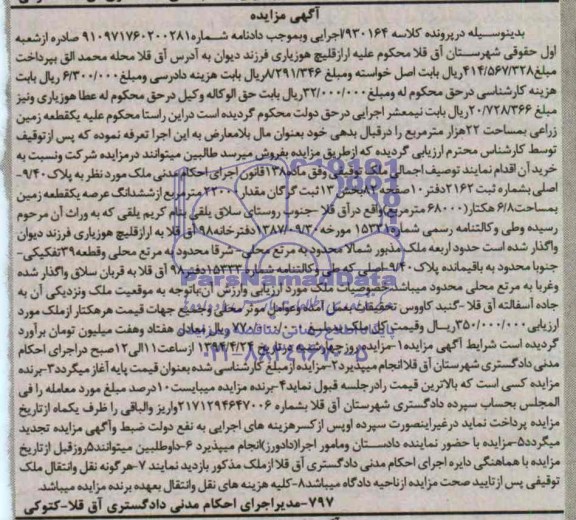 آگهی مزایده
بدینوسیله درپرونده کلاسه ۷۹۳۰۱۶۴اجرایی وبموجب دادنامه شماره۹۱۰۹۹۷۱۷۶۰۲۰۰۲۸۱ صادره ازشعبه
اول حقوقی شهرستان آق قلا محکوم علیه ارازقلیچ هوزیاری فرزند دیوان به آدرس آق قلا محله محمد الق بپرداخت
مبلغ۴۱۴/۵۶۷/۳۲۸ریال بابت اصل خواسته ومبلغ۸/۲۹۱/۳۴۶ریال بابت هزینه دادرسی ومبلغ۶/۳۰۰/۰۰۰ریال بابت
هزینه کارشناسی درحق محکوم له ومبلغ۳۲/۰۰۰/۰۰۰ریال بابت حق الوکاله وکیل درحق محکوم له عطا هوزیاری ونیز
مبلغ ۲۰/۷۲۸/۳۶۶ریال بابت نیمعشر اجرایی درحق دولت محکوم گردیده است دراین راستا محکوم علیه یکقطعه زمین
زراعی بمساحت ۲۲هزار مترمربع را درقبال بدهی خود بعنوان مال بلامعارض به این اجرا تعرفه نموده که پس ازتوقیف
توسط کارشناس محترم ارزیابی گردیده که ازطریق مزایده بفروش میرسد طالبین میتوانند درمزایده شرکت ونسبت به
خرید آن اقدام نمایند توصیف اجمالی ملک توقیفی وفق ماده۱۳۸قانون اجرای احکام مدنی ملک مورد نظر به پلاک ۹/۴۰-
اصلی بشماره ثبت ۲۱۶۲دفتر۱۰صفحه۸۲بخش ۱۳ثبت گرگان مقدار۲۲۰۰۰مترمربع ازششدانگ عرصه یکقطعه زمین
بمساحت۶/۸هکتار(۶۸۰۰۰ مترمربع)واقع درآق قلا-جنوب روستای سلاق یلقی بنام کریم یلقی که به وراث آن مرحوم
رسیده وطی وکالتنامه رسمی شماره ۱۵۳۳۱مورخه۱۳۸۷/۰۹/۳۰دفترخانه۹۸آق قلا به ارازقلیچ هوزیاری فرزند دیوان
واگذار شده است حدود اربعه ملک مذبور شمالا محدود به مرتع محلی-شرقا محدود به مرتع محلی وقطعه۳۹تفکیکی-
جنوبا محدود به باقیمانده پلاک ۹/۴۰-اصلی که طی وکالتنامه شماره ۱۵۳۳۳دفتر۹۸ آق قلا به قربان سلاق واگذار شده
وغربا به مرتع محلی محدود میباشدخصوصیات ملک مورد ارزیابی وارزش آن باتوجه به موقعیت ملک ونزدیکی آن به
جاده آسفالته آق قلا-گنبد کاووس تحقیقات بعمل آمده وعوامل موثر محلی وجمیع جهات قیمت هرهکتار ازملک مورد
ارزیابی۳۵۰/۰۰۰/۰۰۰ریال وقیمت کل ملک بمبلغ ۷۷۰/۰۰۰/۰۰۰ریال معادل هفتاد وهفت میلیون تومان برآورد
گردیده است شرایط آگهی مزایده۱-مزایده روز چهارشنبه درتاریخ ۱۳۹۴/۴/۲۴ ازساعت۱۱الی۱۲صبح دراجرای احکام
مدنی دادگستری شهرستان آق قلاانجام میپذیرد۲-مزایده ازمبلغ کارشناسی شده بعنوان قیمت پایه آغاز میگردد۳-برنده
مزایده کسی است که بالاترین قیمت رادرجلسه قبول نماید۴-برنده مزایده میبایست۱۰درصد مبلغ مورد معامله را فی
المجلس بحساب سپرده دادگستری شهرستان آق قلا بشماره ۲۱۷۱۲۹۴۶۴۷۰۰۶واریز والباقی را ظرف یکماه ازتاریخ
مزایده پرداخت نماید درغیراینصورت سپرده اوپس ازکسرهزینه های اجرایی به نفع دولت ضبط وآگهی مزایده تجدید
میگردد۵-مزایده با حضور نماینده دادستان ومامور اجرا(دادورز)انجام میپذیرد ۶-داوطلبین میتوانند۵روزقبل ازتاریخ
مزایده با هماهنگی دایره اجرای احکام مدنی دادگستری آق قلا ازملک مذکور بازدید نمایند ۷-هرگونه نقل وانتقال ملک
توقیفی پس ازتایید صحت مزایده ازناحیه دادگاه میباشد۸-کلیه هزینه های نقل وانتقال بعهده برنده مزایده میباشد.
۷۹۷-مدیراجرای احکام مدنی دادگستری آق قلا-کتوکی
ParsNamadData